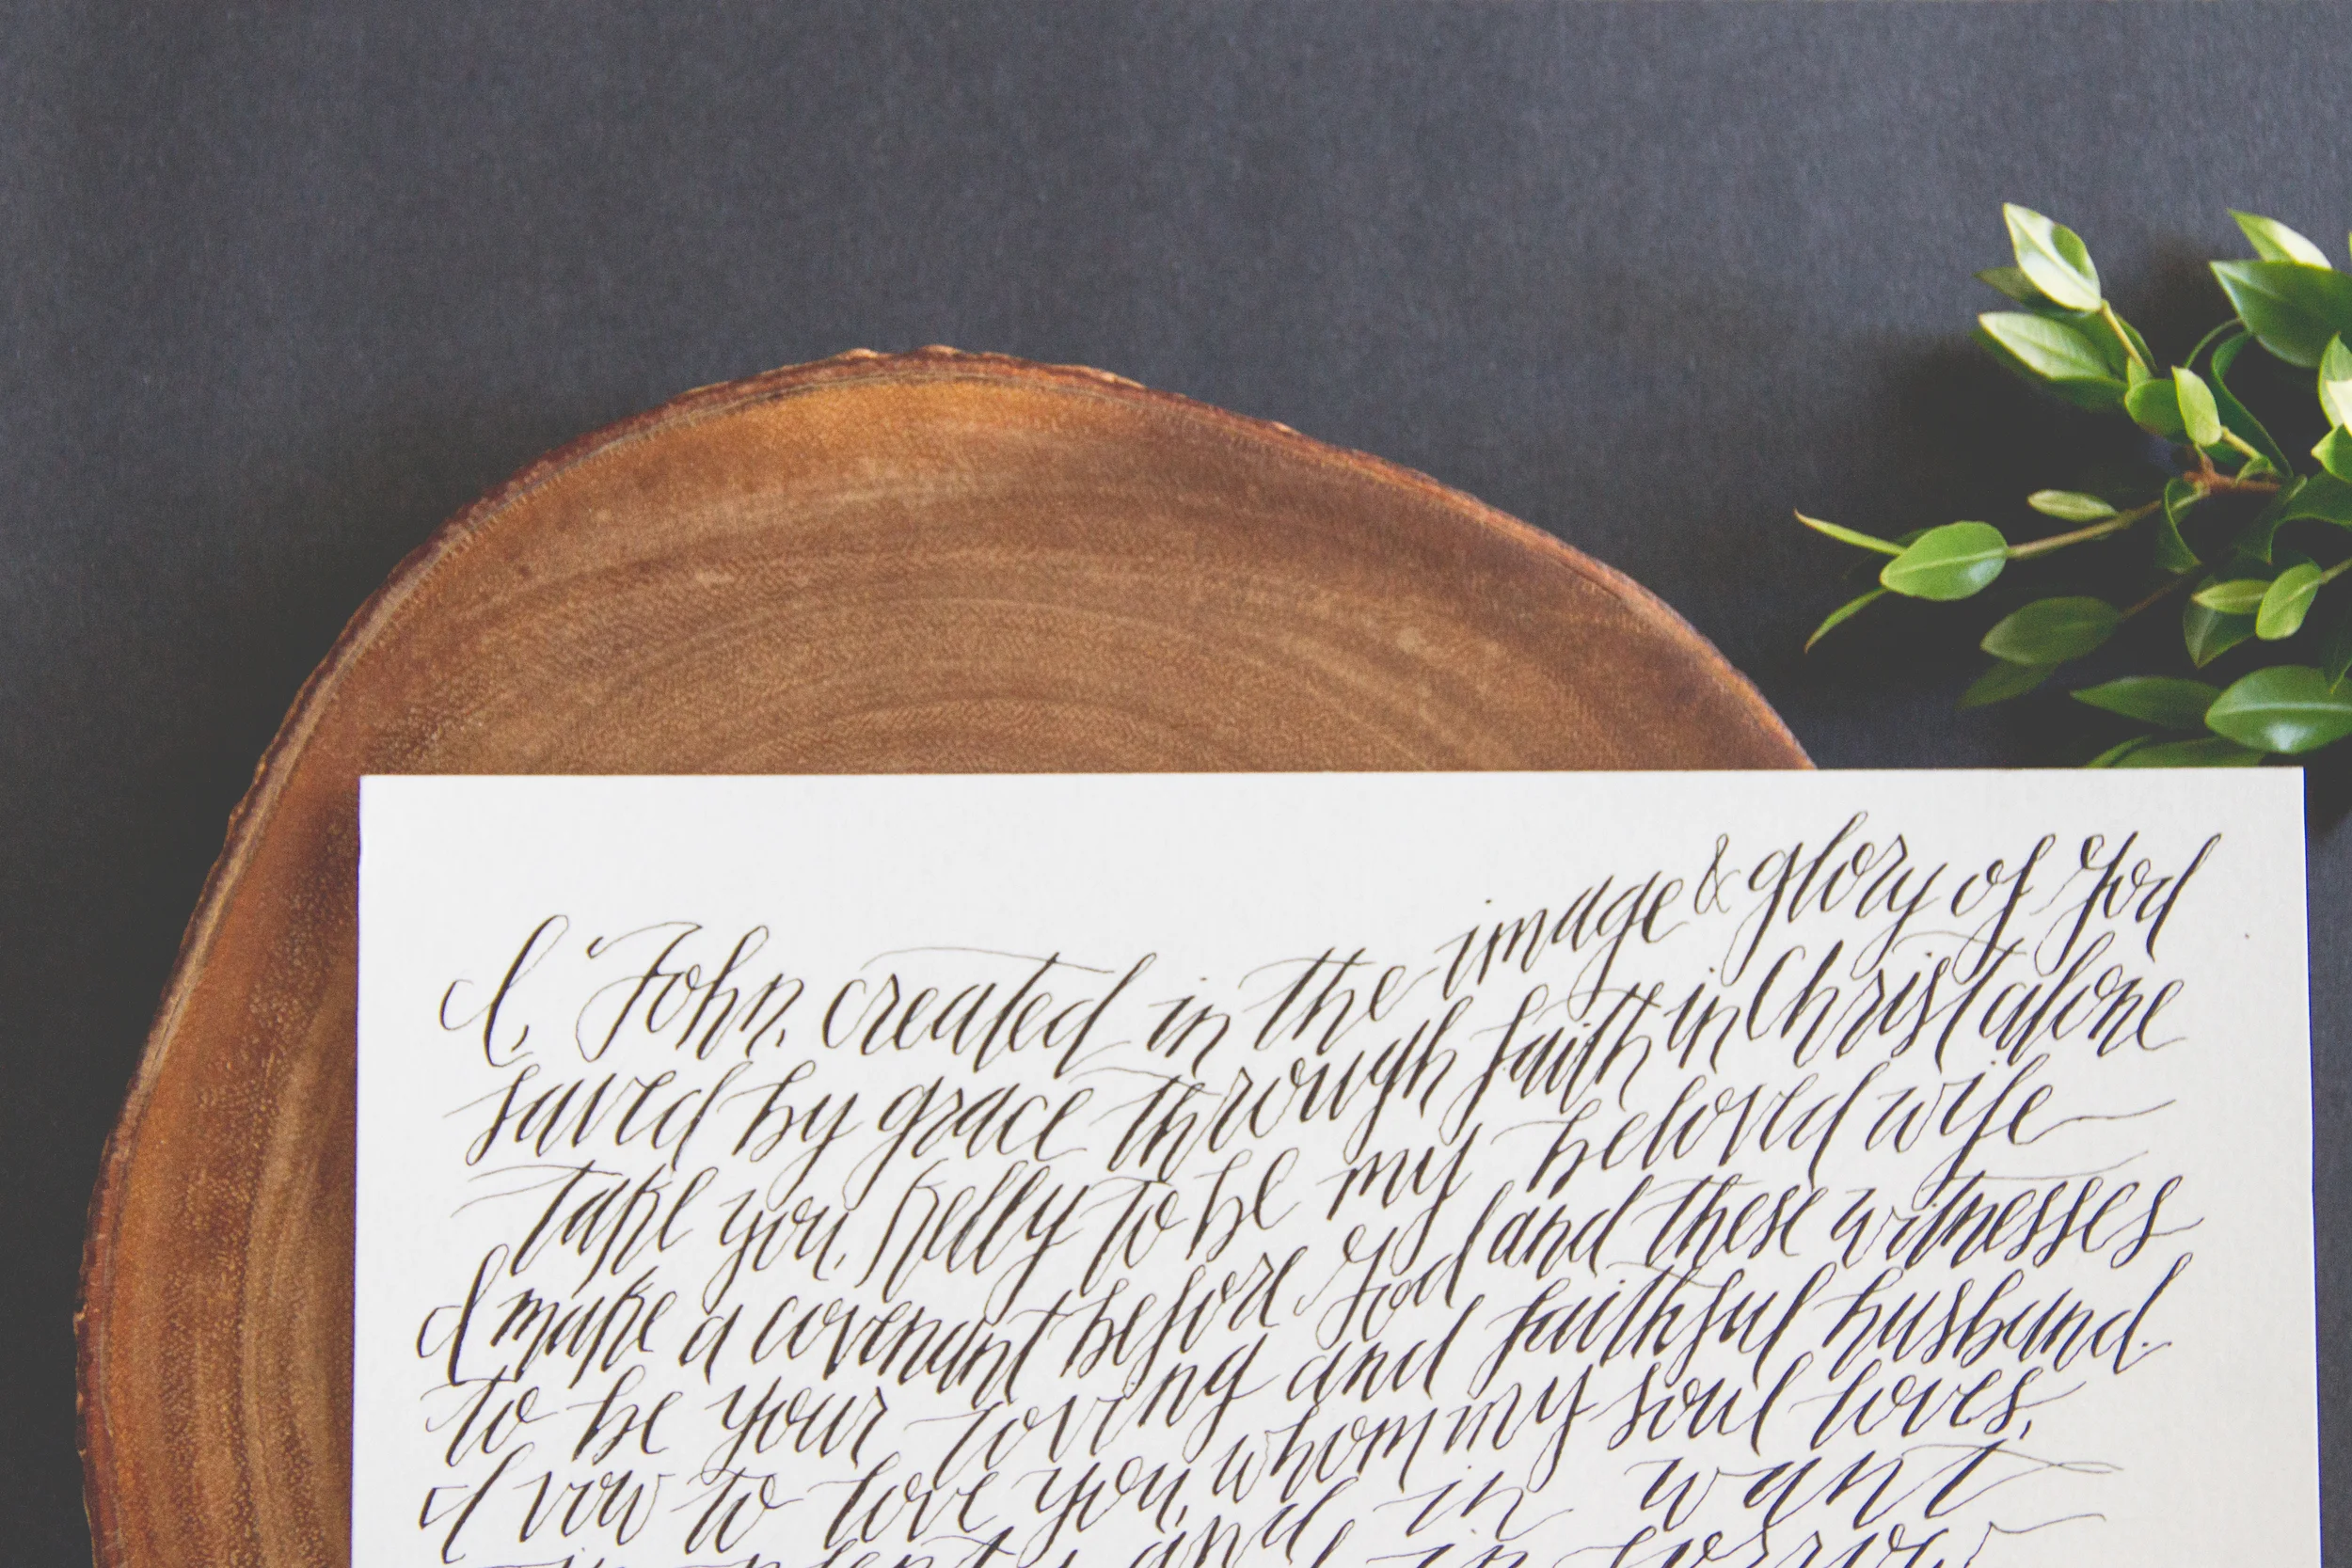 I, John, created in the image & glory of God
saved by grace through faith in Christ alone
take you, Kelly to be my beloved wife
I make a covenant before God and these witnesses
to be your loving and faithful husband.
I vow to love you, whom my soul loves,
in plenty and in want
in sorrow